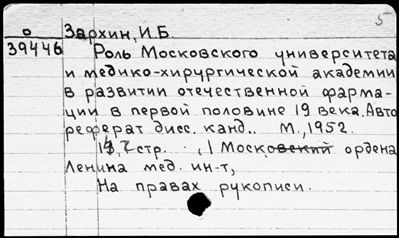 5
о Зархин, И.Б.
39446 Роль Московского университета
и медико-хирургической академии
в развитии отечественной фарма-
ции в первой половине 19 века. Авто
реферат дисс. канд.. М., 1952.
стр. 1 Московский ордена
Ленина мед. ин-т,
На правах рукописи.